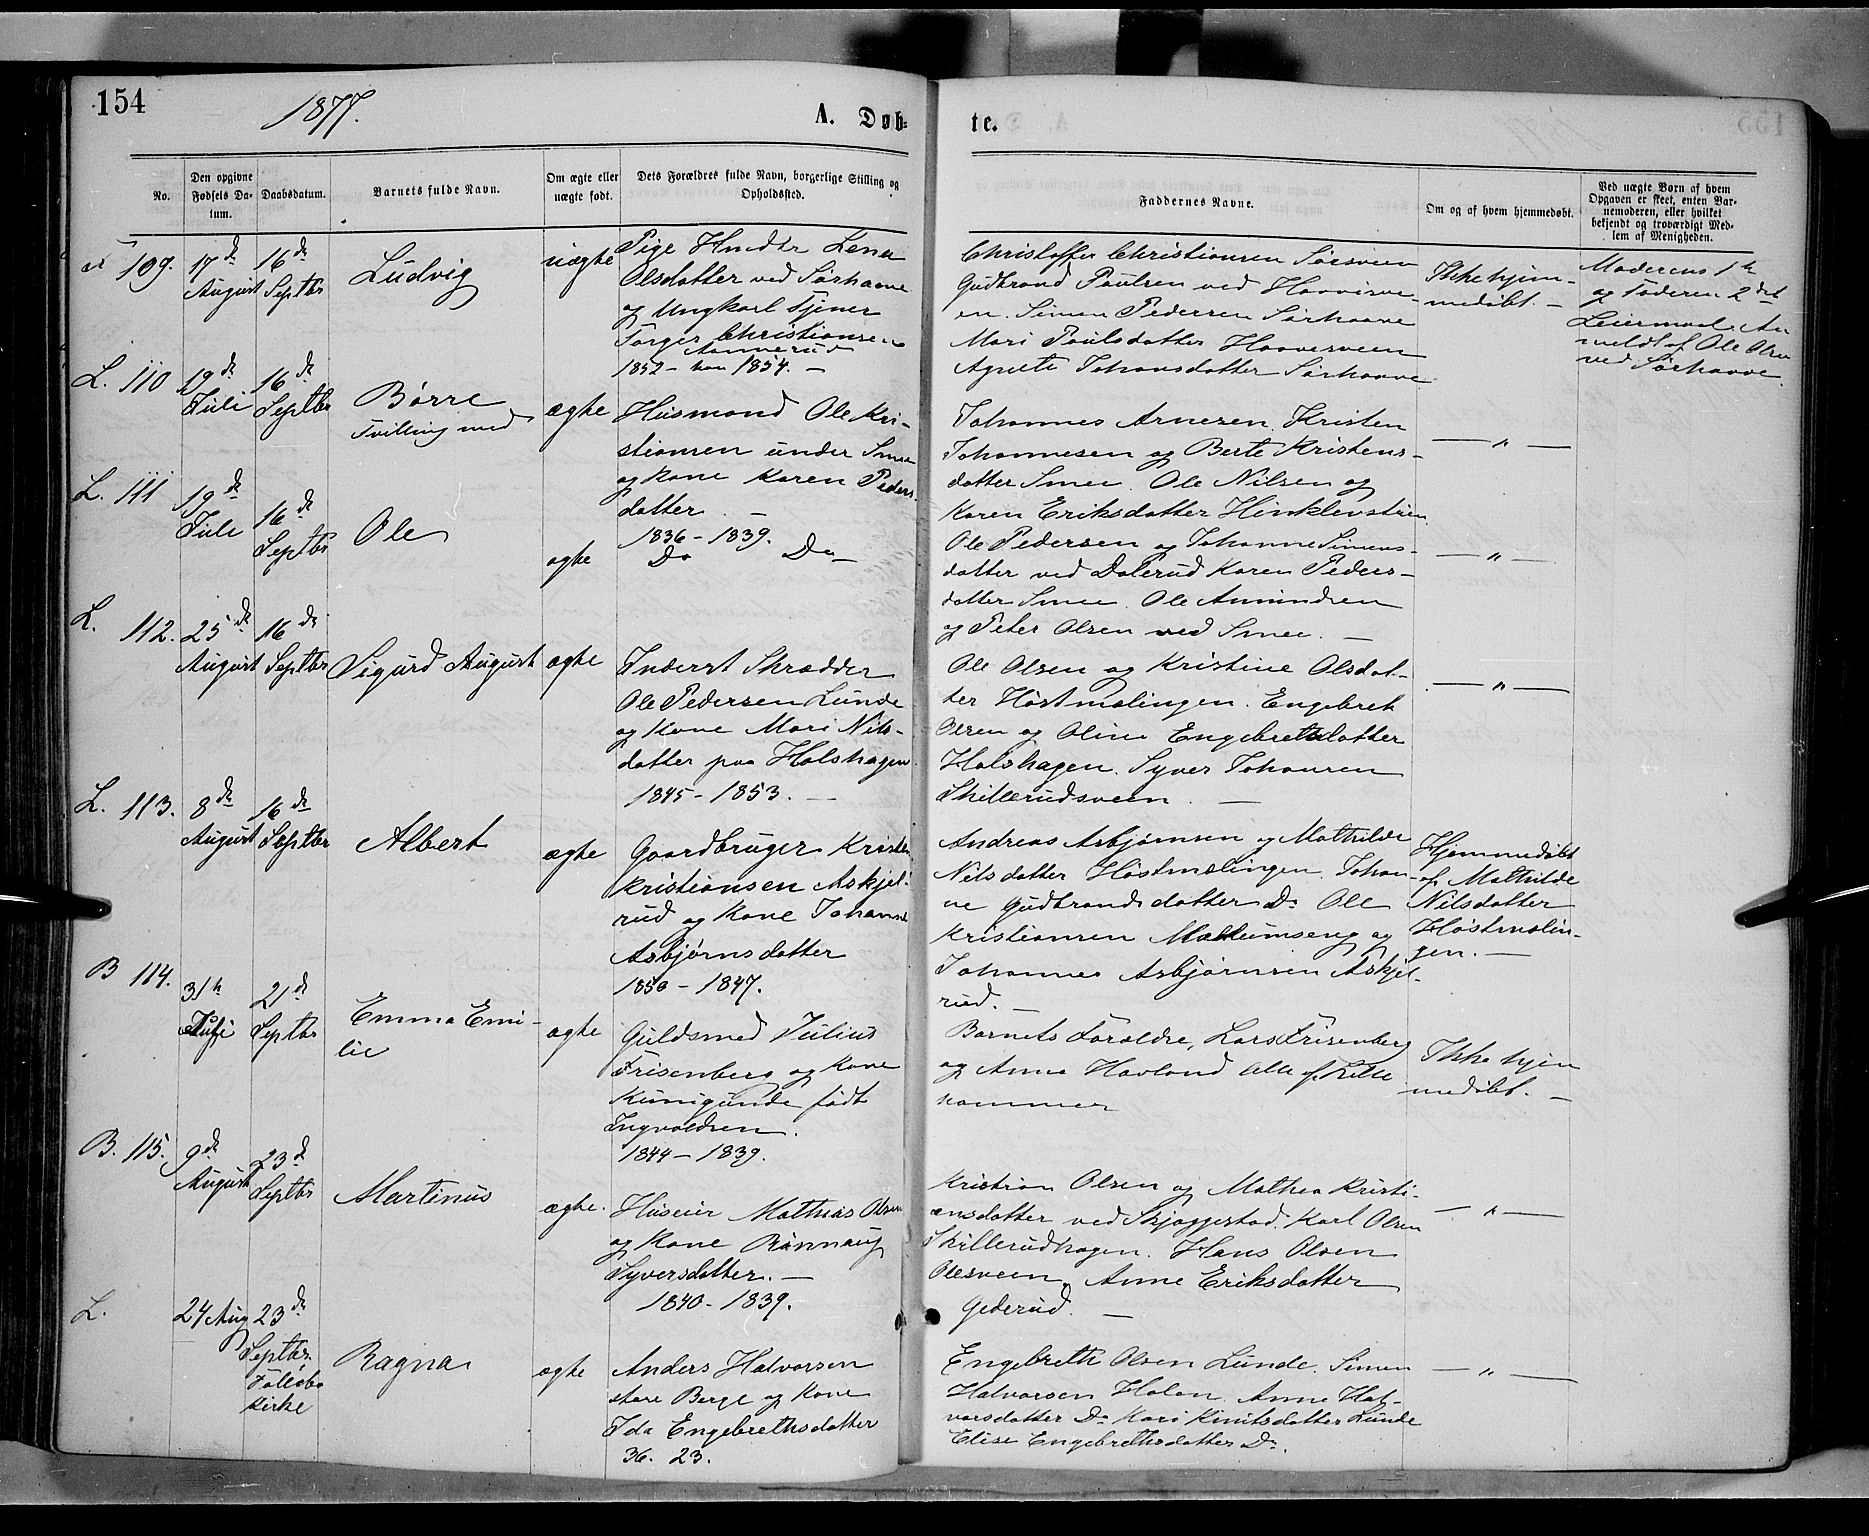 154
1877.
A. Døb-
te.
No.
Den opgivne
Fødsels Da-
tum.
Daabsdatum.
Barnets fulde Navn.
Om ægte eller
uægte født.
Dets Forældres fulde Navn, borgerlige Stilling og
Opholdssted.
Faddernes Navne.
Om og af hvem hjemmedøbt.
Ved uægte Børn af hvem
Opgaven er skeet, enten Bar-
nemoderen, eller hvilket
bekjendt og troværdigt Med-
lem af Menigheden.
109.
17de
August
16de
Septbr
Ludvig
uægte
Pige Lena
Olsdatter ved Sørhaave
og Ungkarl Tjener
Torger Christiansen
1852 - 1854. -
Christoffer Christiansen
Gudbrand Paulsen ved
en. Simen Pedersen Sørhaave
Mari Paulsdatter Haaversveen
Agnete Johansdatter Sørhaave
Ikke hjem-
medøbt. -
Moderens 1ste
og Faderens 2det
Leiermaal. An
meldt af Ole Olsen
ved Sørhaave.
L. 110
19de
Juli
16de
Septbr
Børre
Tvilling med
ægte
Husmand Ole Kri-
stiansen under Smee
og Kone Karen Peders-
datter. -
1836 - 1839.
Johannes Arnesen. Kristen
Johannesen og Berte Kristens-
datter Smee. Ole Nilsen og
Karen Eriksdatter
- " -
L. 111
19de
Juli
16de
Septbr
Ole
ægte
Do Do
Ole Pedersen og Johanne Simens-
datter ved Dalerud Karen Peders-
datter Smee. Ole Amundsen
og Peter Olsen ved Smee. -
- " -
L. 112.
25de
August
16de
Septbr
Sigurd August
ægte
Inderst Skrædder
Ole Pedersen Lunde
og Kone Mari Nils-
datter paa Holshagen
1845 - 1853. -
Ole Olsen og Kristine Olsdat-
ter Høstmælingen. Engebret
Olsen og Oline Engebretsdatter
Holshagen. Syver Johansen
Skillerudsveen. -
- " -
L. 113.
8de
August
16de
Septbr
Albert
ægte
Gaardbruger Kristen
Kristiansen Askjel-
rud og Kone Johanne
Asbjørnsdatter
1850 - 1847.
Andreas Asbjørnsen og Mathilde
Nilsdatter Høstmælingen. Johan-
ne Gudbrandsdatter Do Ole
Kristiansen og
Johannes Asbjørnsen Askjel-
rud. -
Hjemmedøbt
af Mathilde
Nilsdatter
Høstmælin-
gen. -
B 114.
31te
Juli
21de
Septbr
Emma Emi-
lie
ægte
Guldsmed Julius
Frisenberg og Kone
Kunigunde født
Ingvaldsen.
1844 - 1839.
Barnets Forældre, Lars Frisenberg
og Anna Havland Alle af Lille
hammer
Ikke hjem
medøbt. -
B. 115.
9de
August
23de
Septbr
Martinus
ægte.
Huseier Mathias Olsen
og Kone Rønnaug
Syversdatter. -
1840 - 1839.
Kristian Olsen og Mathea Kristi-
ansdatter ved Skjaggestad. Karl Olsen
Skillerudhagen. Hans Olsen
Olesveen. Anne Eriksdatter
Gederud. -
- " -
L.
24 Aug
23de
Septbr
Follebo
Kirke
Ragna
ægte
Anders Halvorsen
store Berge og Kone
Ida Engebrethsdatter
36. 23.
Engebreth Olsen Lunde. Simen
Halvorsen Holen Anne Hal-
vorsdatter Do Kari Knutsdatter Lunde
Elise Engebrethsdatter Do.
- " -